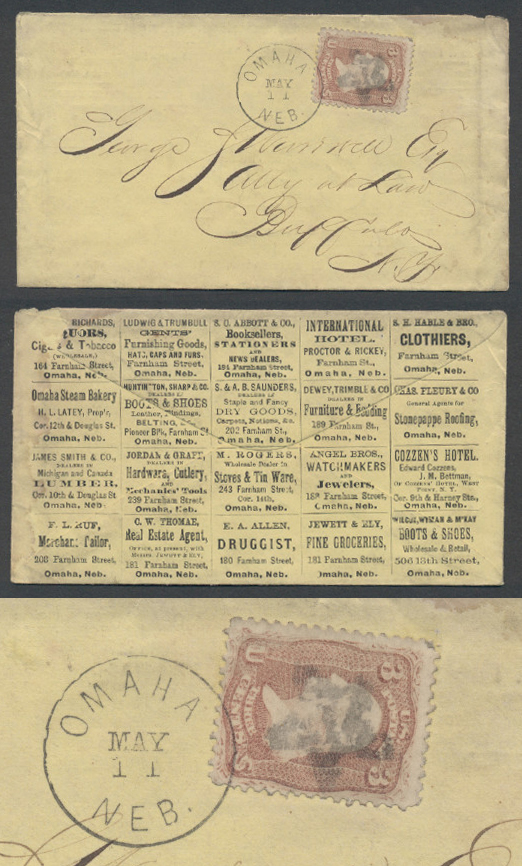 OMAHA
MAY
11
NEB.
George J
Atty at Law
Buffalo
N.Y.
RICHARDS,
UORS,
& Tobacco
(WHOLESALE,)
164 Farnham Street,
Omaha, Neb.
LUDWIG & TRUMBULL
GENTS'
Furnishing Goods,
HATS, CAPS AND FURS.
Farnham Street,
Omaha, Neb.
S. C. ABBOTT & CO.,
Booksellers,
STATIONERS
AND
NEWS DEALERS,
191 Farnham St.
Omaha, Neb.
INTERNATIONAL
HOTEL.
PROCTOR & RICKEY,
Farnham St.,
Omaha, Neb.
S. H. HABLE & BRO.,
CLOTHIERS,
Farnham Street,
Omaha, Neb.
Omaha Steam Bakery
H. L. LATEY, Prop'r,
Cor. 12th & Douglas St.
Omaha, Neb.
HUNTINGTON, SHARP & CO.
DEALERS IN
BOOTS & SHOES
Leather, Findings,
BELTING,
Pioneer Bl'k, Farnham St
Omaha, Neb.
S. & A. B. SAUNDERS,
DEALERS IN
Staple and Fancy
DRY GOODS,
Carpets, Notions, &c.
202 Farnham St.,
Omaha, Neb.
DEWEY, TRIMBLE & CO
DEALERS IN
Furniture & Bedding
189 Farnham St.,
Omaha, Neb.
CHAS. FLEURY & CO
General Agents for
Stonenappe Roofing,
Omaha, Neb.
JAMES SMITH & CO.,
DEALERS IN
Michigan and Canada
LUMBER,
Cor. 10th & Douglas St
Omaha, Neb.
JORDAN & GRAFT,
DEALERS IN
Hardware, Cutlery,
AND
Mechanics' Tools
239 Farnham Street,
Omaha, Neb.
M. ROGERS,
Wholesale Dealer in
Stoves & Tin Ware,
243 Farnham Street,
Cor. 14th,
Omaha, Neb.
ANGEL BROS.,
WATCHMAKERS
AND
Jewelers,
188 Farnham St.,
Omaha, Neb.
COZZEN'S HOTEL.
Edward Cozzens,
J. M. Bettman,
OF COZZENS' HOTEL, WEST
POINT, N. Y.
Cor. 9th & Harney Sts.,
Omaha, Neb.
F. L. RUF,
Merchant Tailor,
208 Farnham Street,
Omaha, Neb.
C. W. THOMAE,
Real Estate Agent,
Office, at present, with
Messrs. JEWETT & ELY,
181 Farnham Street,
Omaha, Neb.
E. A. ALLEN,
DRUGGIST,
180 Farnham Street,
Omaha, Neb.
JEWETT & ELY,
FINE GROCERIES,
181 Farnham Street,
Omaha, Neb.
WILCOX, & M'KAY
BOOTS & SHOES,
Wholesale & Retail,
506 13th Street,
Omaha, Neb.
OMAHA
MAY
11
NEB.
U
S
3
3